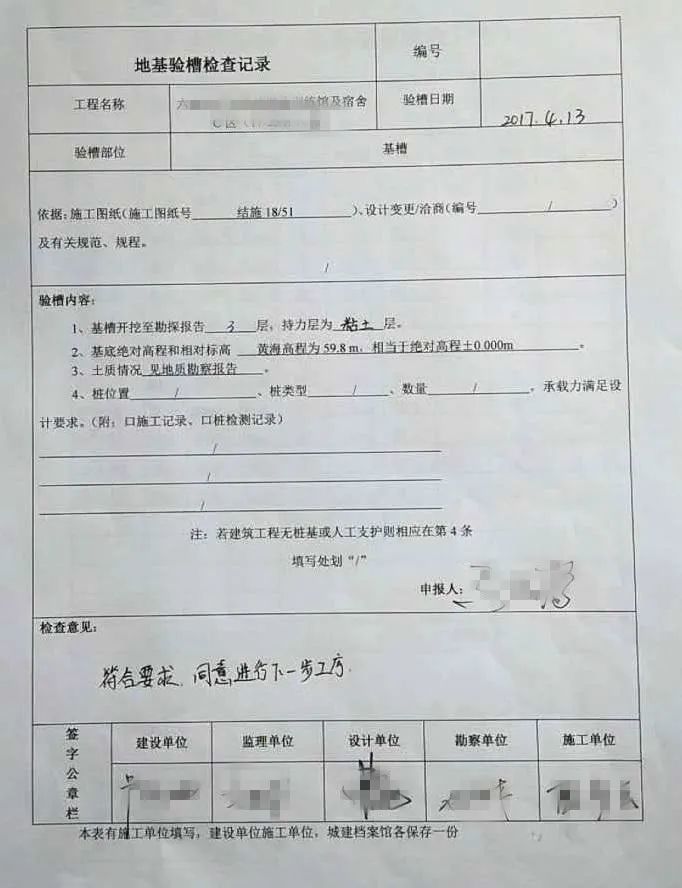 地基验槽检查记录
编号
工程名称
六 馆及宿舍
验槽日期
2017.4.13
验槽部位
基槽
依据:施工图纸(施工图纸号 结施18/51 )、设计变更/洽商(编号 / )
及有关规范、规程。
/
验槽内容:
1、基槽开挖至勘探报告 3 层,持力层为 粘土 层。
2、基底绝对高程和相对标高 黄海高程为 59.8 m,相当于绝对高程土0.000m 。
3、土质情况 见地质勘察报告 。
4、桩位置 / 、桩类型 / 、数量 / 。承载力满足设
计要求。(附:口施工记录、口桩检测记录)
/
/
/
注:若建筑工程无桩基或人工支护则相应在第 4 条
填写处划“/”
申报人:
检查意见:
符合要求,同意进行下一步工序.
签字公章栏
建设单位
监理单位
设计单位
勘察单位
施工单位
本表有施工单位填写,建设单位施工单位,城建档案馆各保存一份